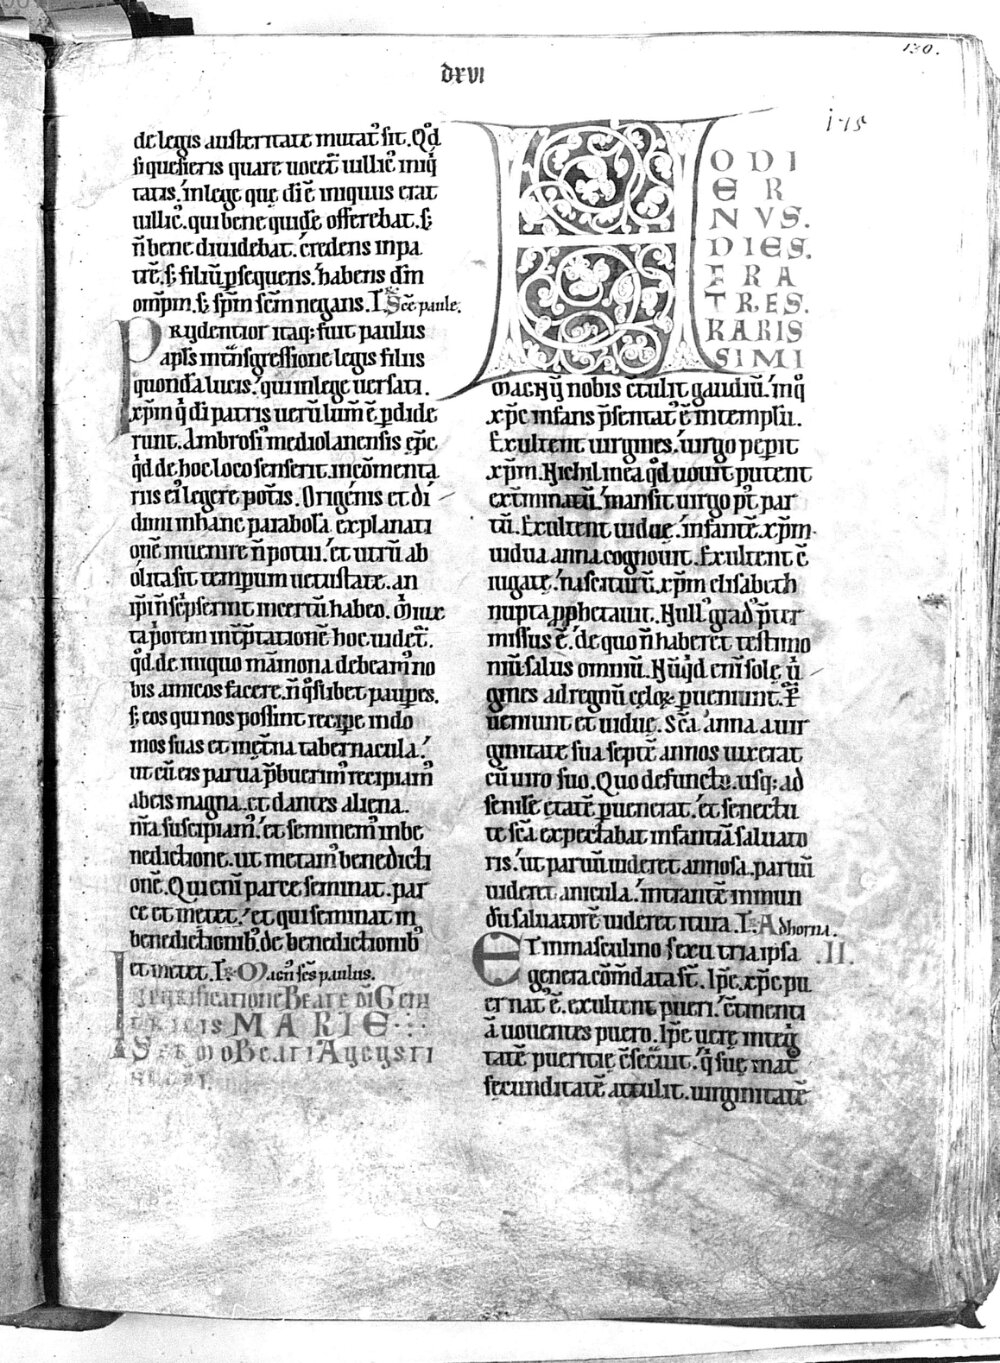 130.
dxvi
175
de legis austeritate mutat᷒ sit. Qd̄
si quesieris quare uocet᷒ uillic᷒ iniq̇
tatis. in lege quę di ē iniquus erat
uillic᷒. qui bene quidē offerebat. s;
n̄ bene diuidebat. credens in pa
trē. s; filiū ꝑsequens. habens dm̄
om̄pm. s; sp̄m sc̄m negans. I. Sc̄e paule.
Prudentior itaq; fuit paulus
apl̄s in tn̄sgressione legis filius
quondā lucis. qui in lege uersati.
xp̄m q̇ di patris uerū lum̄ ē ꝑdide
runt. Ambrosi᷒ mediolanensis ep̄c
qd̄ de hoc loco senserit. in cōmenta
riis ei᷒ legere potīs. Origenis et di
dimi in hanc parabolā explanati
onē inuenire n̄ potui. et utrū ab
olita sit temporum uetustate. an
ipi n̄ sc̄pserint incertū habeo. M iux
ta p̄orem int̄p̄tationē hoc uidet᷒.
qd̄ de iniquo māmona debeam᷒ no
bis amicos facere. n̄ q̇slibet pauꝑes.
s; eos qui nos possint recipe in do
mos suas et in ęt̄na tabernacula.
ut cū eis parua p̄buerim᷒ recipiam᷒
ab eis magna. et dantes aliena.
nr̄a suscipiam᷒. et seminem᷒ in be
nedictione. ut metam᷒ benedicti
onē. Qui eni parce seminat. par
ce et metet. et qui seminat in
benedictionib᷒ de benedictionib᷒
et metet. I. Magn᷒ sc̄s paulus.
In purificatione Beate di Geni
tricis MARIE
Sermo Beati Augusti
HODI
ER
NVS.
DIES.
FRA
TRES.
KARIS
SIMI
magnū nobis c̄tulit gaudiū. in q̇
xp̄c infans p̄sentat᷒ ē in templū.
Exultent uirgines. uirgo peꝑit
xp̄m. Nichil in ea qd̄ uouit putent
ext̄minatū. mansit uirgo p᷒t par
tū. Exultent uiduę. infantē xp̄m
uidua anna cognouit. Exultent c̄
iugatę. nasciturū xp̄m elisabeth
nupta ꝓphetauit. Null᷒ grad᷒ p̄ter
missus ē. de quo n̄ haberet testimo
niū salus omniū. Nūq̇d enī solę ū
gines ad regnū cęloꝝ ꝑueniunt. P
ueniunt et uiduę. Sc̄a anna a uir
ginitate sua septē annos uixerat
cū uiro suo. Quo defuncto. usq; ad
senilē etatē ꝑuenerat. et senectu
te sc̄a expectabat infantiā saluato
ris. ut paruū uideret annosa. paruū
uideret anicula. intrantē in mun
dū saluatorē uideret itura. I. Adhorna.
Et in masculino sexu tria ipsa .II.
genera cōmdata st̄. Ip̄e xp̄c pu
er nat᷒ ē. exultent pueri. c̄tinenti
ā uouentes puero. Ip̄e uerę inteġ
tatē pueritię c̄secuit. q̇ suę mat᷒
fecunditatē attulit. uirginitatē